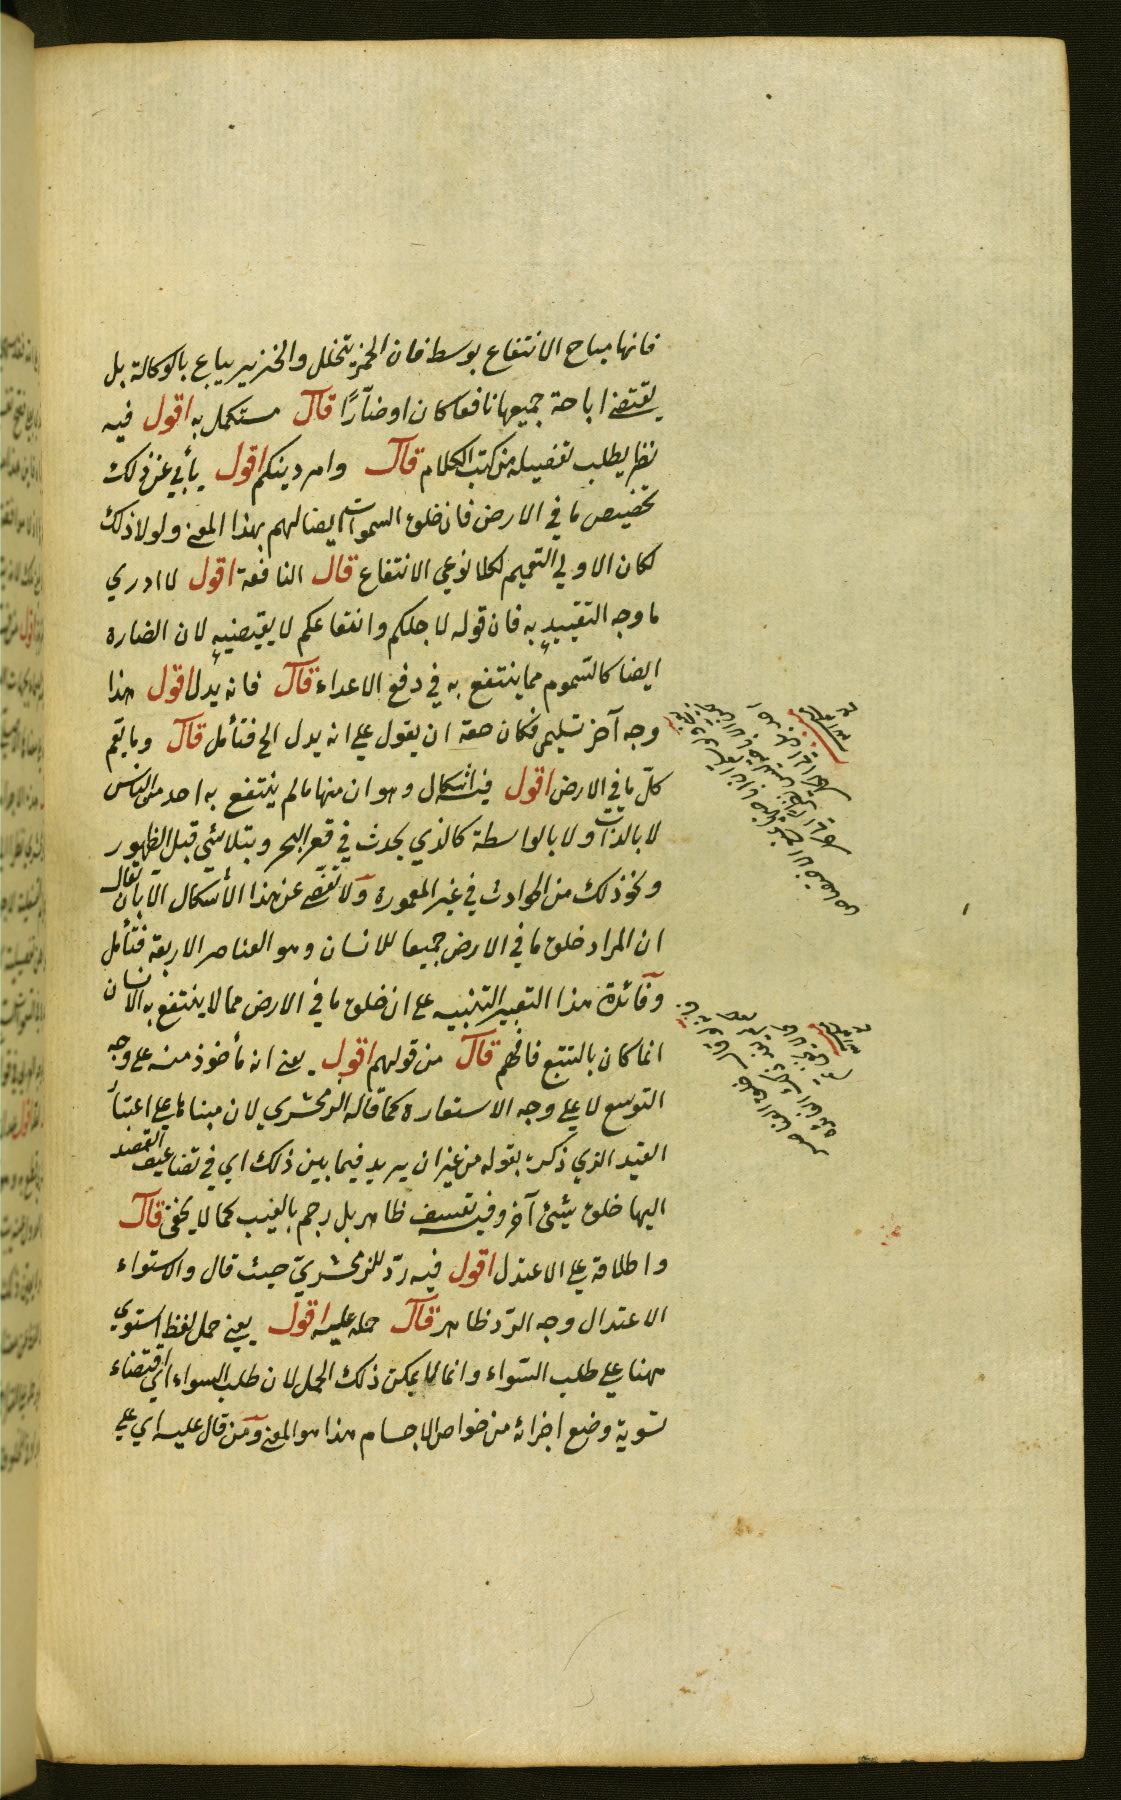 فانها مباح الانتفاع بوسط فان الخمر يتخلل والخنزير يباع بالوكالة بل
يقتضي اباحة جميعها نافعا كان او ضارًا قال مستكمل به اقول فيه
نظر يطلب تفصيله من كتب الكلام قال وامر دينكم اقول يأبي عن ذلك
تخصيص ما في الارض فان خلق السموات ايضا لهم بهذا المعنى ولولا ذلك
لكان الاولي التعميم لكلا نوعي الانتفاع قال النافعة اقول لا ادري
ما وجه التقييد به فان قوله لاجلكم وانتفاعكم لا يقتضيه لان الضارة
ايضا كالسموم مما ينتفع به في دفع الاعداء قال فانه يدل اقول هذا
وجه آخر تسليمي فكان حقه ان يقول علي انه يدل الخ فتأمل قال وما يعم
كلّ ما في الارض اقول فيه اشكال وهو ان منها ما لم ينتفع به احد من الناس
لا بالذات ولا بالواسطة كالذي يحدث في قعر البحر ويتلاشي قبل الظهور
ونحو ذلك من الحوادث في غير المعمورة ولا تفصّي عن هذا الأشكال الا بان يقال
ان المراد خلق ما في الارض جميعا للانسان وهو العناصر الاربعة فتأمل
وفائدة هذا التعبير التنبيه علي ان خلق ما في الارض مما لا ينتفع به الانسان
انما كان بالتتبع فافهم قال من قولهم اقول يعني انه مأخوذ منه علي وجه
التوسع لا علي وجه الاستعارة كما قاله الزمخشري لان مبناها علي اعتبار
القيد الذي ذكره بقوله من غير ان يريد فيما بين ذلك اي في تضاعيف القصد
اليها خلق شيئ آخر وفيه تعسف ظاهر بل رجم بالغيب كما لا يخفي قال
واطلاقه علي الاعتدل اقول فيه ردّ للزمخشريّ حيث قال والاستواء
الاعتدال وجه الردّ ظاهر قال حمله عليه اقول يعني حمل لفظ استوي
ههنا علي طلب السّواء وانما لا يمكن ذلك الحمل لان طلب السواء اي اقتضاء
تسوية وضع اجزائه من خواص الاجسام هذا هو المعنى ومن قال عليه اي علي